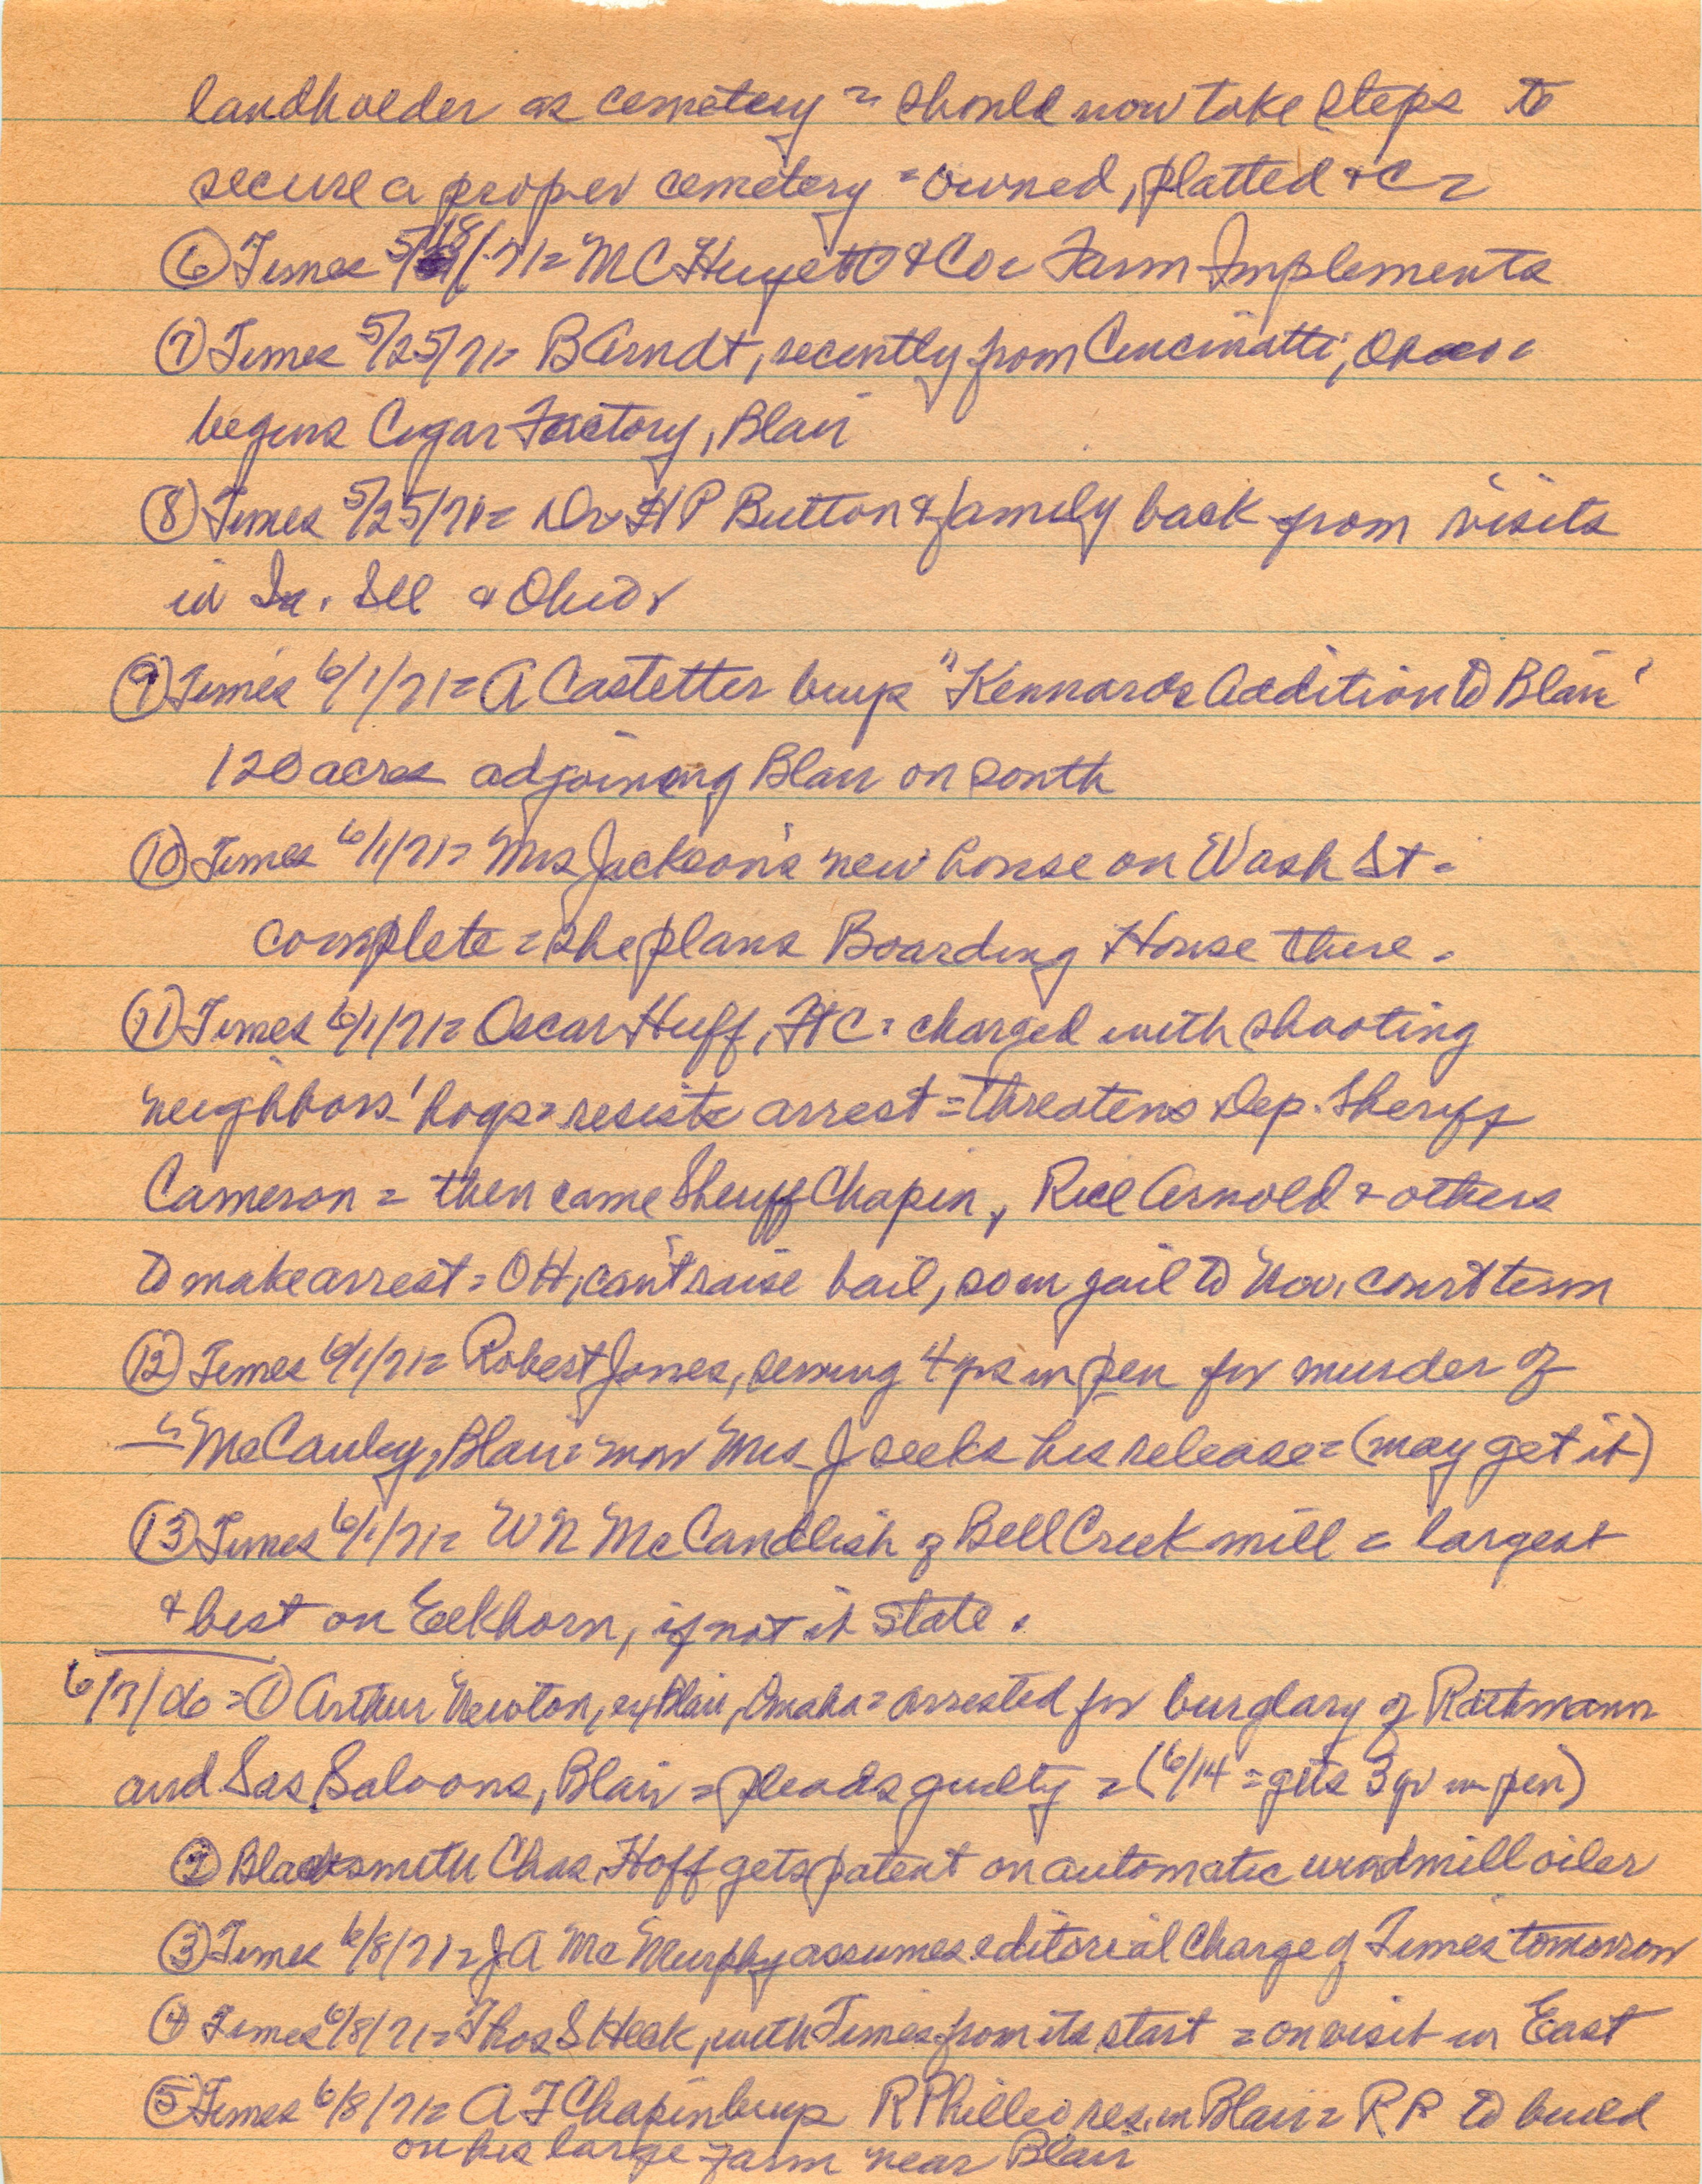 landholder as cemetery = should now take steps to
secure a proper cemetery = owned, platted & C =
⑥ Times 5/18/71 = M C Huyett & Co = Farm Implements
⑦ Times 5/25/71 = B Arndt, recently from Cincinatti, Ohio =
begins Cigar Factory, Blair
⑧ Times 5/25/71 = Dr H P Button & family back from visits
in Ia. Ill & Ohio
⑨ Times 6/1/71 = A Castetter buys "Kennards Addition to Blair"
120 acres adjoining Blair on south
⑩ Times 6/1/71 = Mrs Jackson's new house on Wash St -
complete = she plans Boarding House there.
⑪ Times 6/1/71 = Oscar Huff, Ft C = charged with shooting
neighbors' hogs = resists arrest = threatens Dep. Sheriff
Cameron = then came Sheriff Chapin, Rice Arnold & others
to make arrest = OH, can't raise bail, so in jail to Nov. court term
⑫ Times 6/1/71 = Robert Jones, serving 4 yrs in pen for murder of
— " McCauley, Blair = now Mrs J seeks his release = (may get it)
⑬ Times 6/1/71 = W N McCandlish of Bell Creek mill = largest
& best on Elkhorn, if not in state.
6/7/06 = ① Arthur Newton, ex Blair, Omaha = arrested for burglary of Rathmann
and Sas Saloons, Blair = pleads guilty = (6/14 = gets 3 yr in pen)
② Blacksmith Chas Hoff gets patent on automatic windmill oiler
③ Times 6/8/71 = J A McMurphy assumes editorial charge of Times tomorrow
④ Times 6/8/71 = Thos S Heck, with Times from its start = on visit in East
⑤ Times 6/8/71 = A T Chapin buys R Philleo res. in Blair = RP to build
on his large farm near Blair